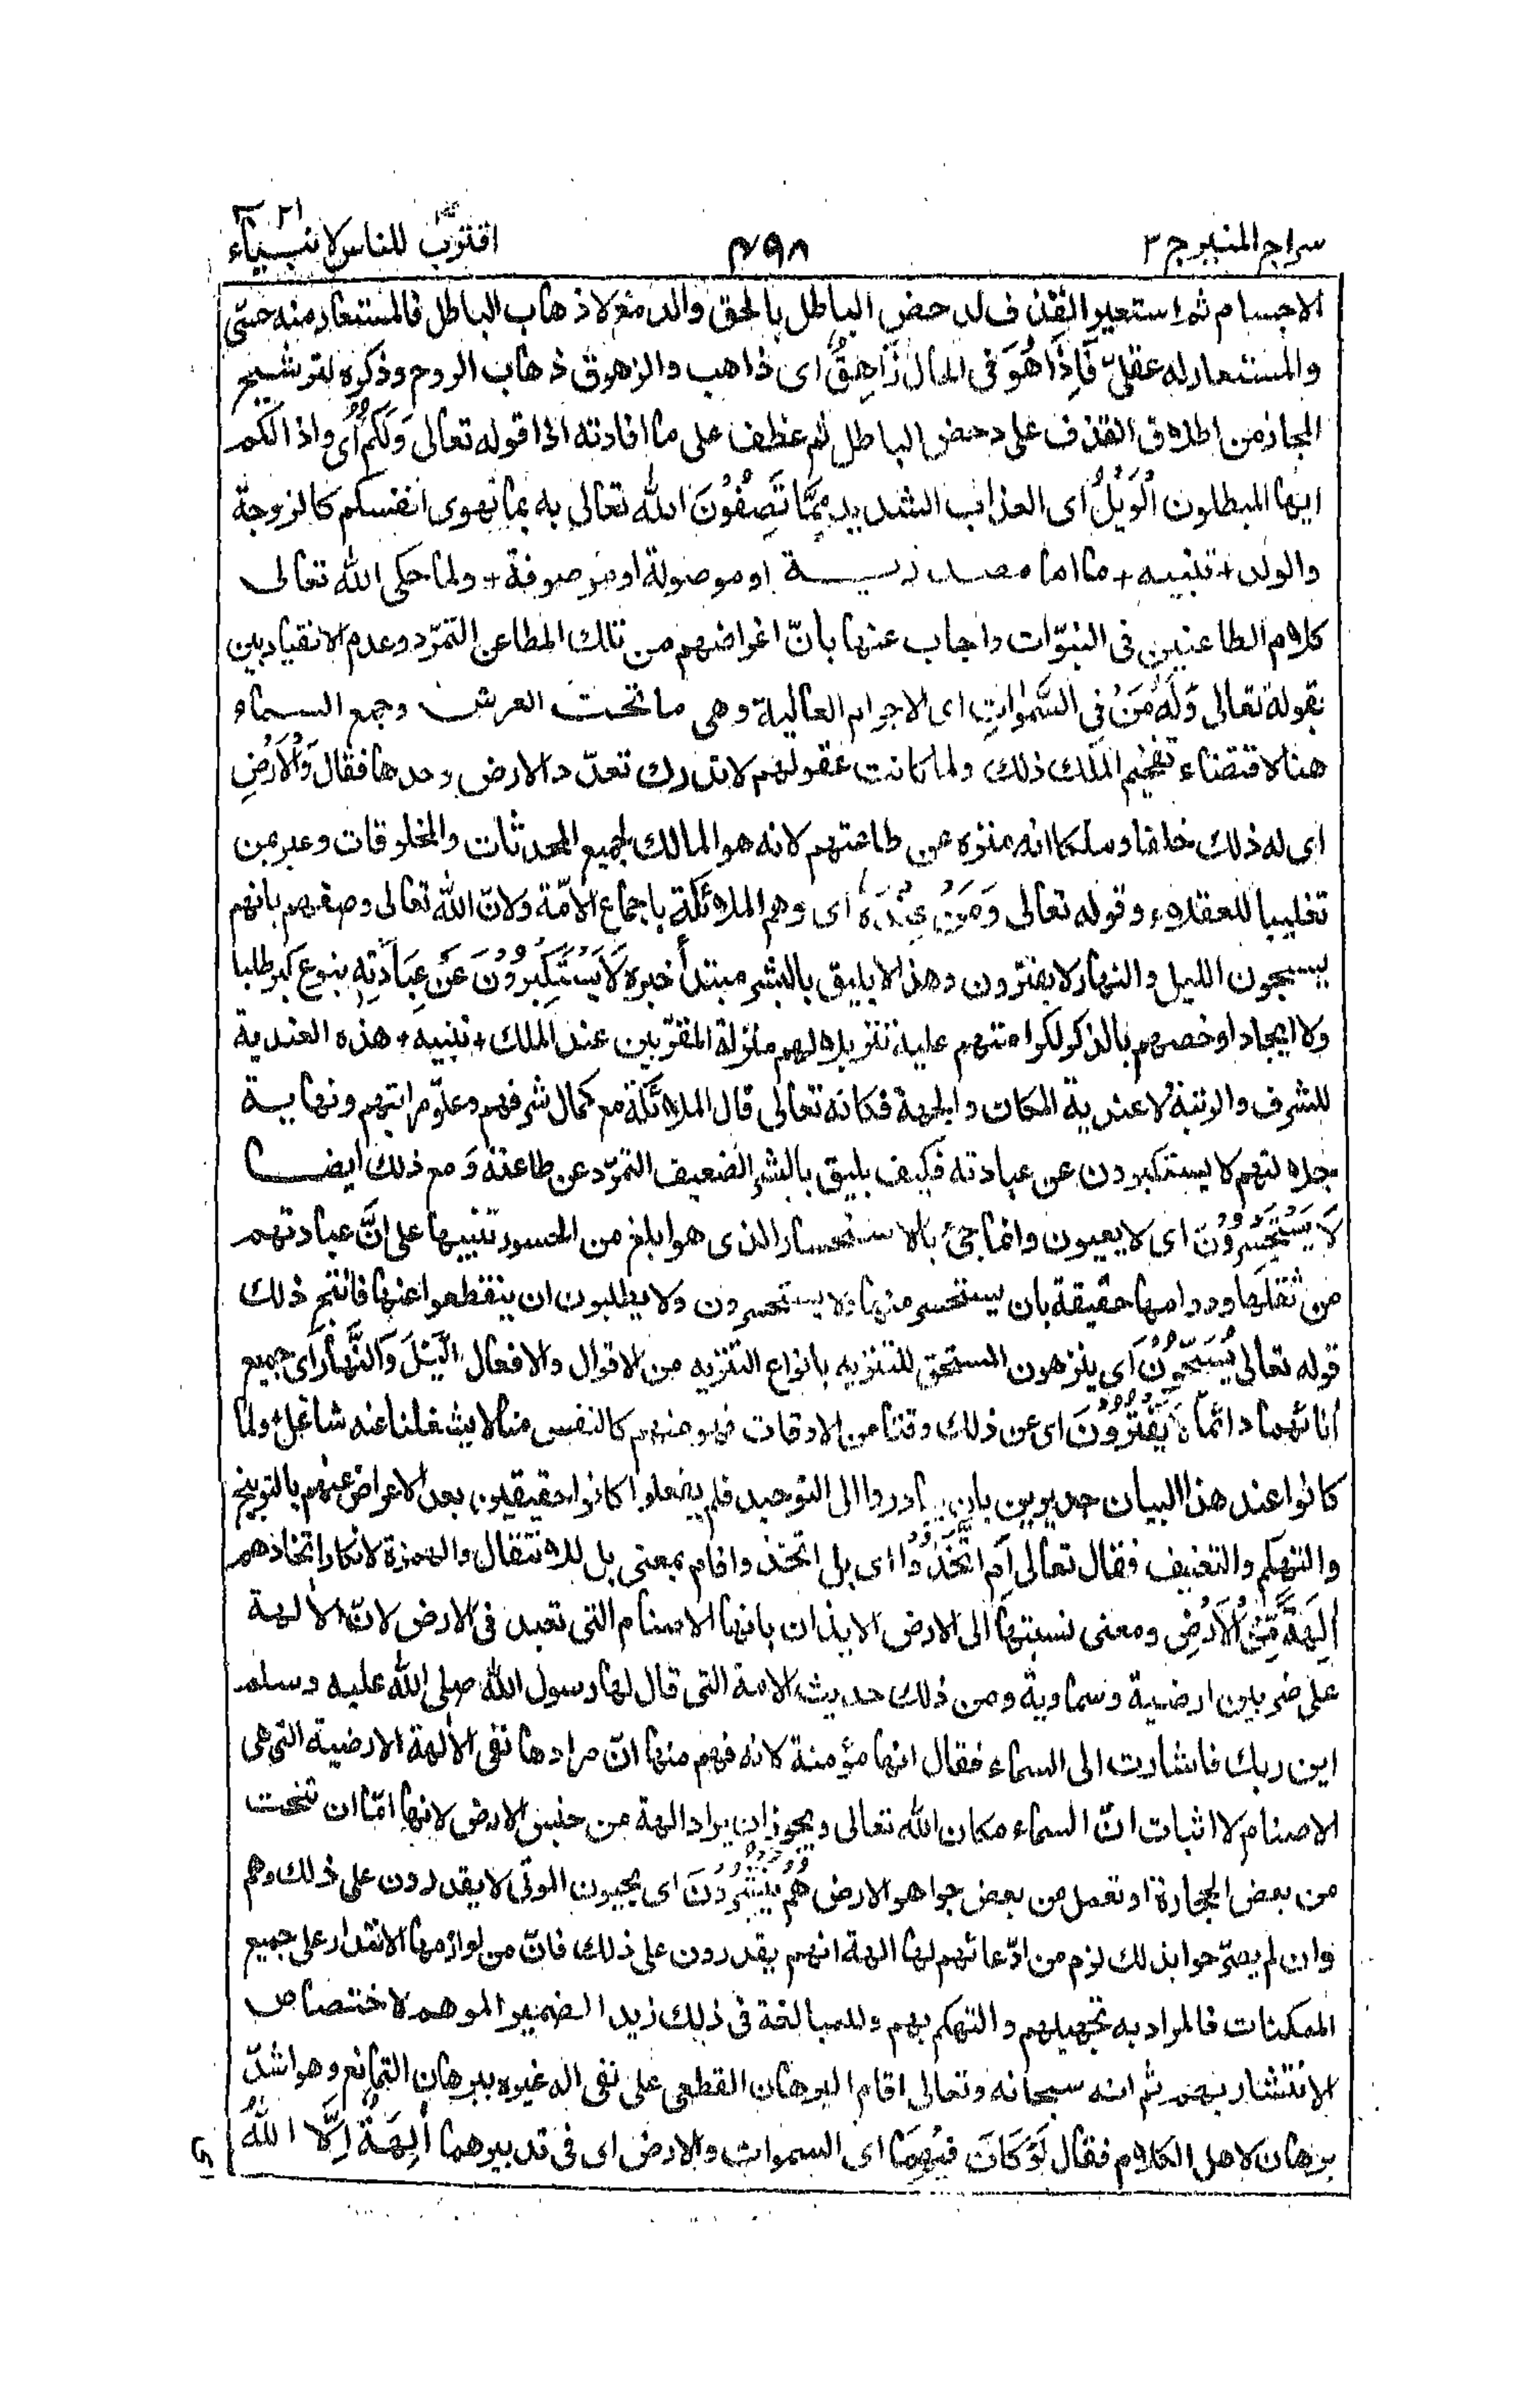 سراج المنير ج ٣
٤٩٨
اقترب للناس الانبياء ٢١
الاجسام ثم استعير القذف لدحض الباطل بالحق والدمغ لاذهاب الباطل فالمستعار منه حسّى
والمستعار له عقلىّ فَاِذَا هُوَ فى الحال زَاهِقٌ اى ذاهب والزهوق ذهاب الروح وذكره لترشيح
المجاز من اطلاق القذف على دحض الباطل ثم عطف على ما افادته اذا قوله تعالى وَلَكُمُ اى واذا لكم
ايها المبطلون الْوَيْلُ اى العذاب الشديد مِمَّا تَصِفُوْنَ الله تعالى به بما تهوى انفسكم كالزوجة
والولد + تنبيه + ما اما مصدرية او موصولة او موصوفة + ولما حكى الله تعالى
كلام الطاعنين فى النبوّات واجاب عنها بانّ اغراضهم من تلك المطاعن التمرّد وعدم الانقياد بين
بقوله تعالى وَلَهٗ مَنْ فِى السَّمٰوٰتِ اى الاجرام العالية وهى ما تحت العرش وجمع السماء
هنا لاقتضاء تفخيم الملك ذلك ولما كانت عقولهم لا تدرك تعدّد الارض وحدها فقال وَالْاَرْضِ
اى له ذلك خلقا وملكا انه منزه عن طاعتهم لانه هو المالك لجميع المحدثات والمخلوقات وعبر بمن
تغليبا للعقلاء وقوله تعالى وَمَنْ عِنْدَهٗ اى وهم الملائكة باجماع الامّة ولانّ الله تعالى وصفهم بانهم
يسبحون الليل والنهار لا يفترون وهذا لا يليق بالبشر مبتدأ خبره لَا يَسْتَكْبِرُوْنَ عَنْ عِبَادَتِهٖ بنوع كبر طلبا
ولا ايجادا وخصهم بالذكر لكرامتهم عليه تنزيلا لهم منزلة المقرّبين عند الملك + تنبيه + هذه العندية
للشرف والرتبة لا عندية المكان والجهة فكانه تعالى قال الملائكة مع كمال شرفهم وعلوّ مراتبهم ونهاية
جلالتهم لا يستكبرون عن عبادته فكيف يليق بالبشر الضعيف التمرّد عن طاعته وَ مع ذلك ايضا
لَا يَسْتَحْسِرُوْنَ اى لا يعيون وانما جئ بالاستحسار الذى هو ابلغ من الحسور تنبيها على انَّ عبادتهم
من ثقلها ودوامها حقيقة بان يستحسر منها ولا يستحسرون ولا يطلبون ان ينقطعوا عنها فانتج ذلك
قوله تعالى يُسَبِّحُوْنَ اى ينزهون المستحق للتنزيه بانواع التنزيه من الاقوال والافعال الَّيْلَ وَالنَّهَارَ اى جميع
اٰنائهما دائما لَا يَفْتُرُوْنَ اى عن ذلك وقتا من الاوقات فهو منهم كالنفس منا لا يشغلنا عنه شاغل ولما
كانوا عند هذا البيان جديرين بان يبادروا الى التوحيد فلم يفعلوا كانوا حقيقين بعد الاعراض عنهم بالتوبيخ
والتهكم والتعنيف فقال تعالى اَمِ اتَّخَذُوْٓا اى بل اتخذوا فام بمعنى بل للانتقال والهمزة لانكار اتخاذهم
اٰلِهَةً مِّنَ الْاَرْضِ ومعنى نسبتها الى الارض الايذان بانها الاصنام التى تعبد فى الارض لانّ الاٰلهة
على ضربين ارضية وسماوية ومن ذلك حديث الامة التى قال لها رسول الله صلى الله عليه وسلم
اين ربك فاشارت الى السماء فقال انها مؤمنة لانه فهم منها انّ مرادها نفى الاٰلهة الارضية التى هى
الاصنام لا اثبات انّ السماء مكان الله تعالى ويجوز ان يراد الهة من جنس الارض لانها امّا ان تنحت
من بعض الحجارة او تعمل من بعض جواهر الارض هُمْ يُنْشِرُوْنَ اى يحيون الموتى لا يقدرون على ذلك وهم
وان لم يصرّحوا بذلك لزم من ادّعائهم لها الهة انهم يقدرون على ذلك فانّ من لوازمها الاقتدار على جميع
الممكنات فالمراد به تجهيلهم والتهكم بهم وللمبالغة فى ذلك زيد الضمير الموهم لاختصاص
الانتشار بهم ثم انه سبحانه وتعالى اقام البرهان القطعى على نفى اله غيره ببرهان التمانع وهو اشدّ
برهان لاهل الكلام فقال لَوْ كَانَ فِيْهِمَآ اى السموات والارض اى فى تدبيرهما اٰلِهَةٌ اِلَّا اللهُ